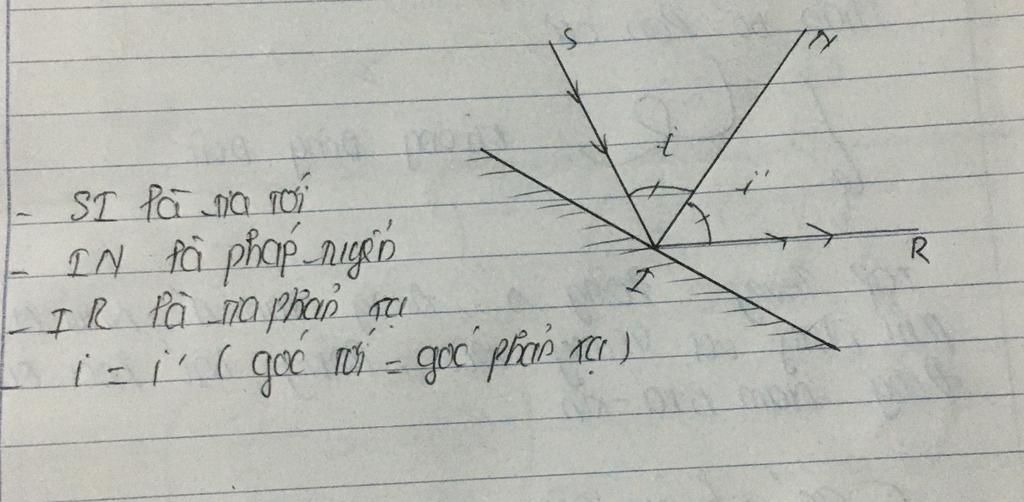 S
N
i
i'
R
I
- SI là tia tới
- IN là pháp tuyến
- IR là tia phản xạ
- i = i' (góc tới = góc phản xạ)